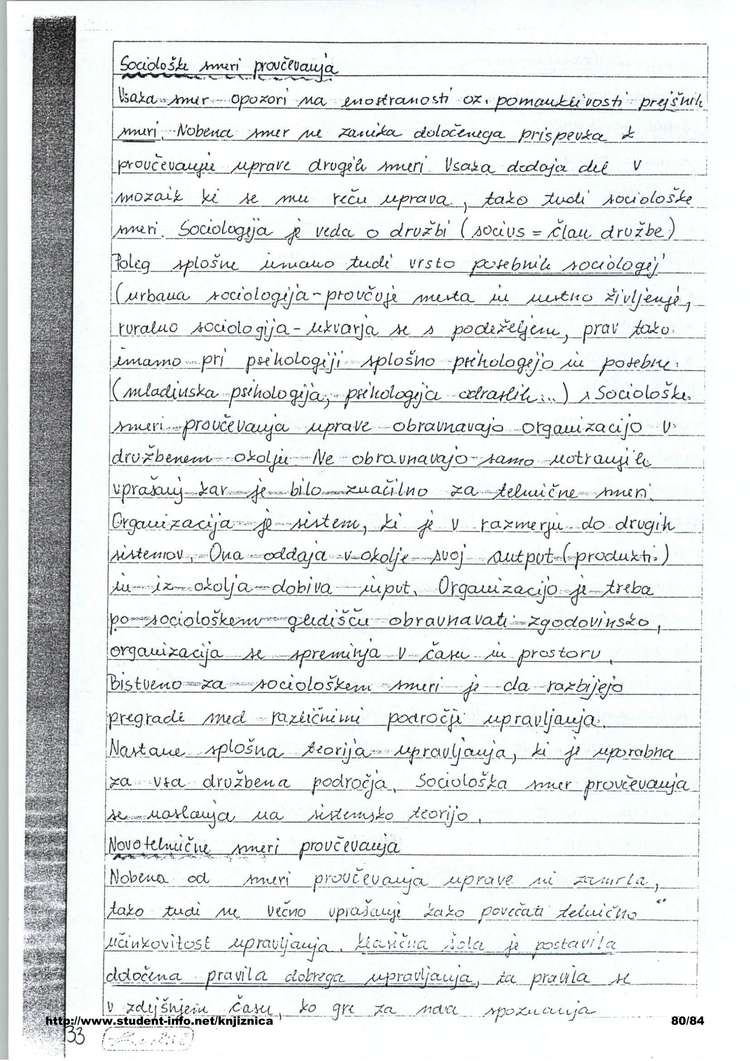 Sociološke smeri proučevanja
Vsaka smer opozori na enostranosti oz. pomankljivosti prejšnih
smeri. Nobena smer ne zanika določenega prispevka k
proučevanju uprave drugih smeri. Vsaka dodaja del v
mozaik ki se mu reče uprava, tako tudi sociološke
smeri. Sociologija je veda o družbi (socius = član družbe)
Poleg splošne imamo tudi vrsto posebnih sociologij
(urbana sociologija - proučuje mesta in mestno življenje,
ruralno sociologija - ukvarja se s podeželjem, prav tako
imamo pri psihologiji splošno psihologijo in posebne
(mladinska psihologija, psihologija odraslih...). Sociološke
smeri proučevanja uprave obravnavajo organizacijo v
družbenem okolju. Ne obravnavajo samo notranjih
vprašanj kar je bilo značilno za tehnične smeri.
Organizacija je sistem, ki je v razmerju do drugih
sistemov. Ona oddaja v okolje svoj autput (produkti)
in iz okolja dobiva input. Organizacijo je treba
po sociološkem gledišču obravnavati zgodovinsko,
organizacija se spreminja v času in prostoru.
Bistveno za sociološkem smeri je da razbijejo
pregrade med različnimi področji upravljanja.
Nastane splošna teorija upravljanja, ki je uporabna
za vsa družbena področja. Sociološka smer proučevanja
se naslanja na sistemsko teorijo.
Novotehnične smeri proučevanja
Nobena od smeri proučevanja uprave ni zamrla,
tako tudi ne večno vprašanje kako povečati tehnično
učinkovitost upravljanja. Klasična šola je postavila
določena pravila dobrega upravljanja, ta pravila se
v zdejšnjem času, ko gre za nova spoznanja
http://www.student-info.net/knjiznica 80/84
33